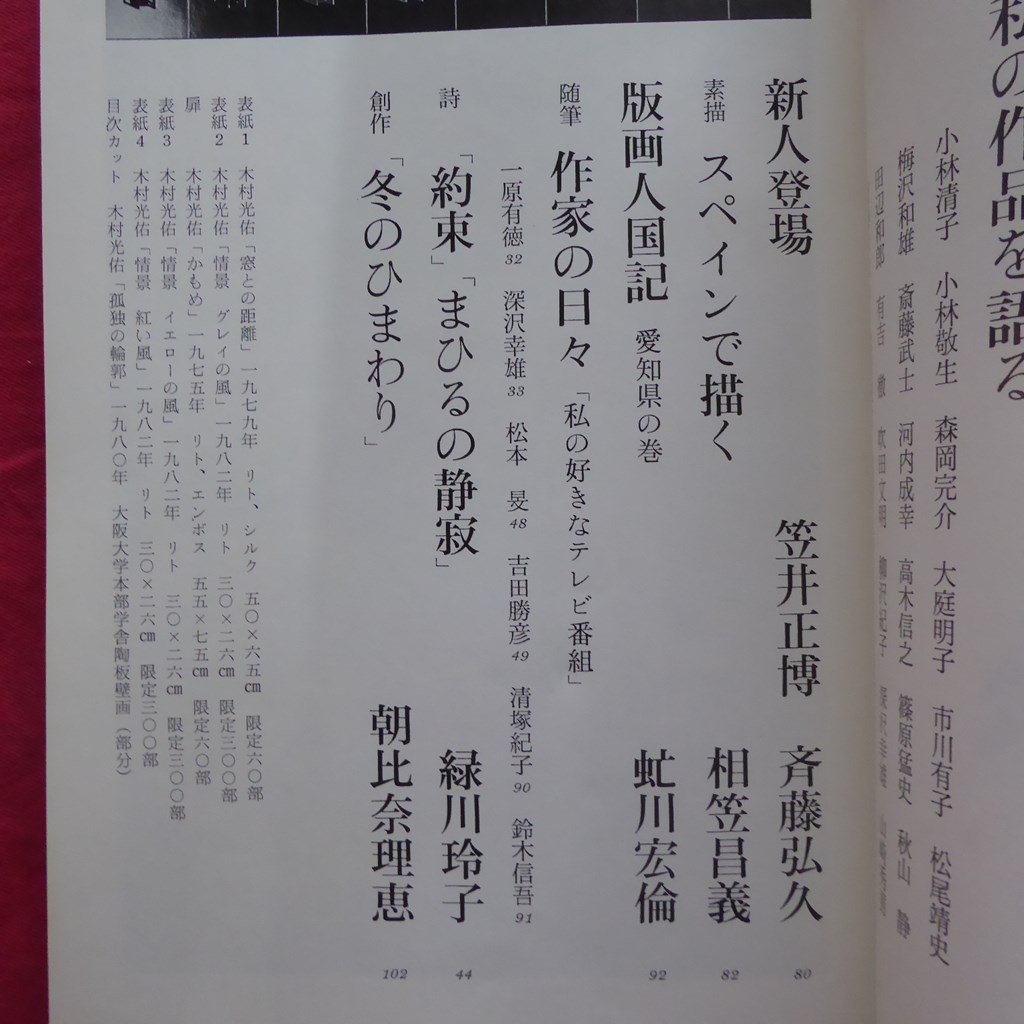 私の作品を語る
小林清子 小林敬生 森岡完介 大庭明子 市川有子 松尾靖史
梅沢和雄 斎藤武士 河内成幸 高木信之 篠原猛史 秋山 静
田辺和郎 有吉 徹 吹田文明 柳沢紀子 深沢幸雄
新人登場 笠井正博 斉藤弘久 80
素描 スペインで描く 相笠昌義 82
版画人国記 愛知県の巻 虻川宏倫 92
随筆 作家の日々 「私の好きなテレビ番組」
一原有徳 32 深沢幸雄 33 松本 旻 48 吉田勝彦 49 清塚紀子 90 鈴木信吾 91
詩 「約束」「まひるの静寂」 緑川玲子 44
創作 「冬のひまわり」 朝比奈理恵 102
表紙1 木村光佑「窓との距離」一九七九年 リト、シルク 五〇×六五㎝ 限定六〇部
表紙2 木村光佑「情景 グレイの風」一九八二年 リト 三〇×二六㎝ 限定三〇〇部
扉 木村光佑「かもめ」一九七五年 リト、エンボス 五五×七五㎝ 限定六〇部
表紙3 木村光佑「情景 イエローの風」一九八二年 リト 三〇×二六㎝ 限定三〇〇部
表紙4 木村光佑「情景 紅い風」一九八二年 リト 三〇×二六㎝ 限定三〇〇部
目次カット 木村光佑「孤独の輪郭」一九八〇年 大阪大学本部学舎陶板壁画(部分)